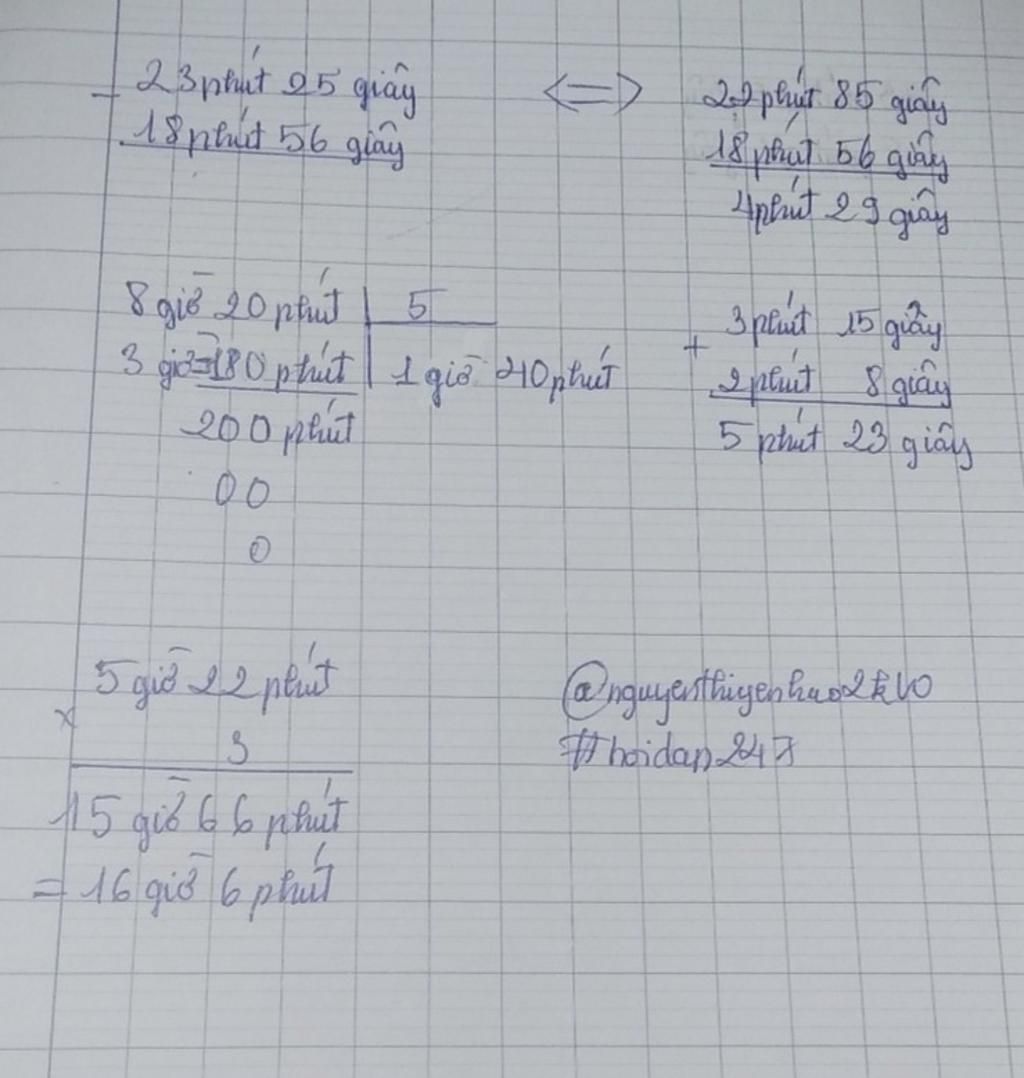 - 23 phút 25 giây <=> 22 phút 85 giây
18 phút 56 giây 18 phút 56 giây
4 phút 29 giây
8 giờ 20 phút | 5
3 giờ = 180 phút | 1 giờ 40 phút
200 phút
00
0
3 phút 15 giây
+
2 phút 8 giây
5 phút 23 giây
5 giờ 22 phút
x
3
15 giờ 66 phút
= 16 giờ 6 phút
@nguyenthiyenhao2k10
#hoidap247